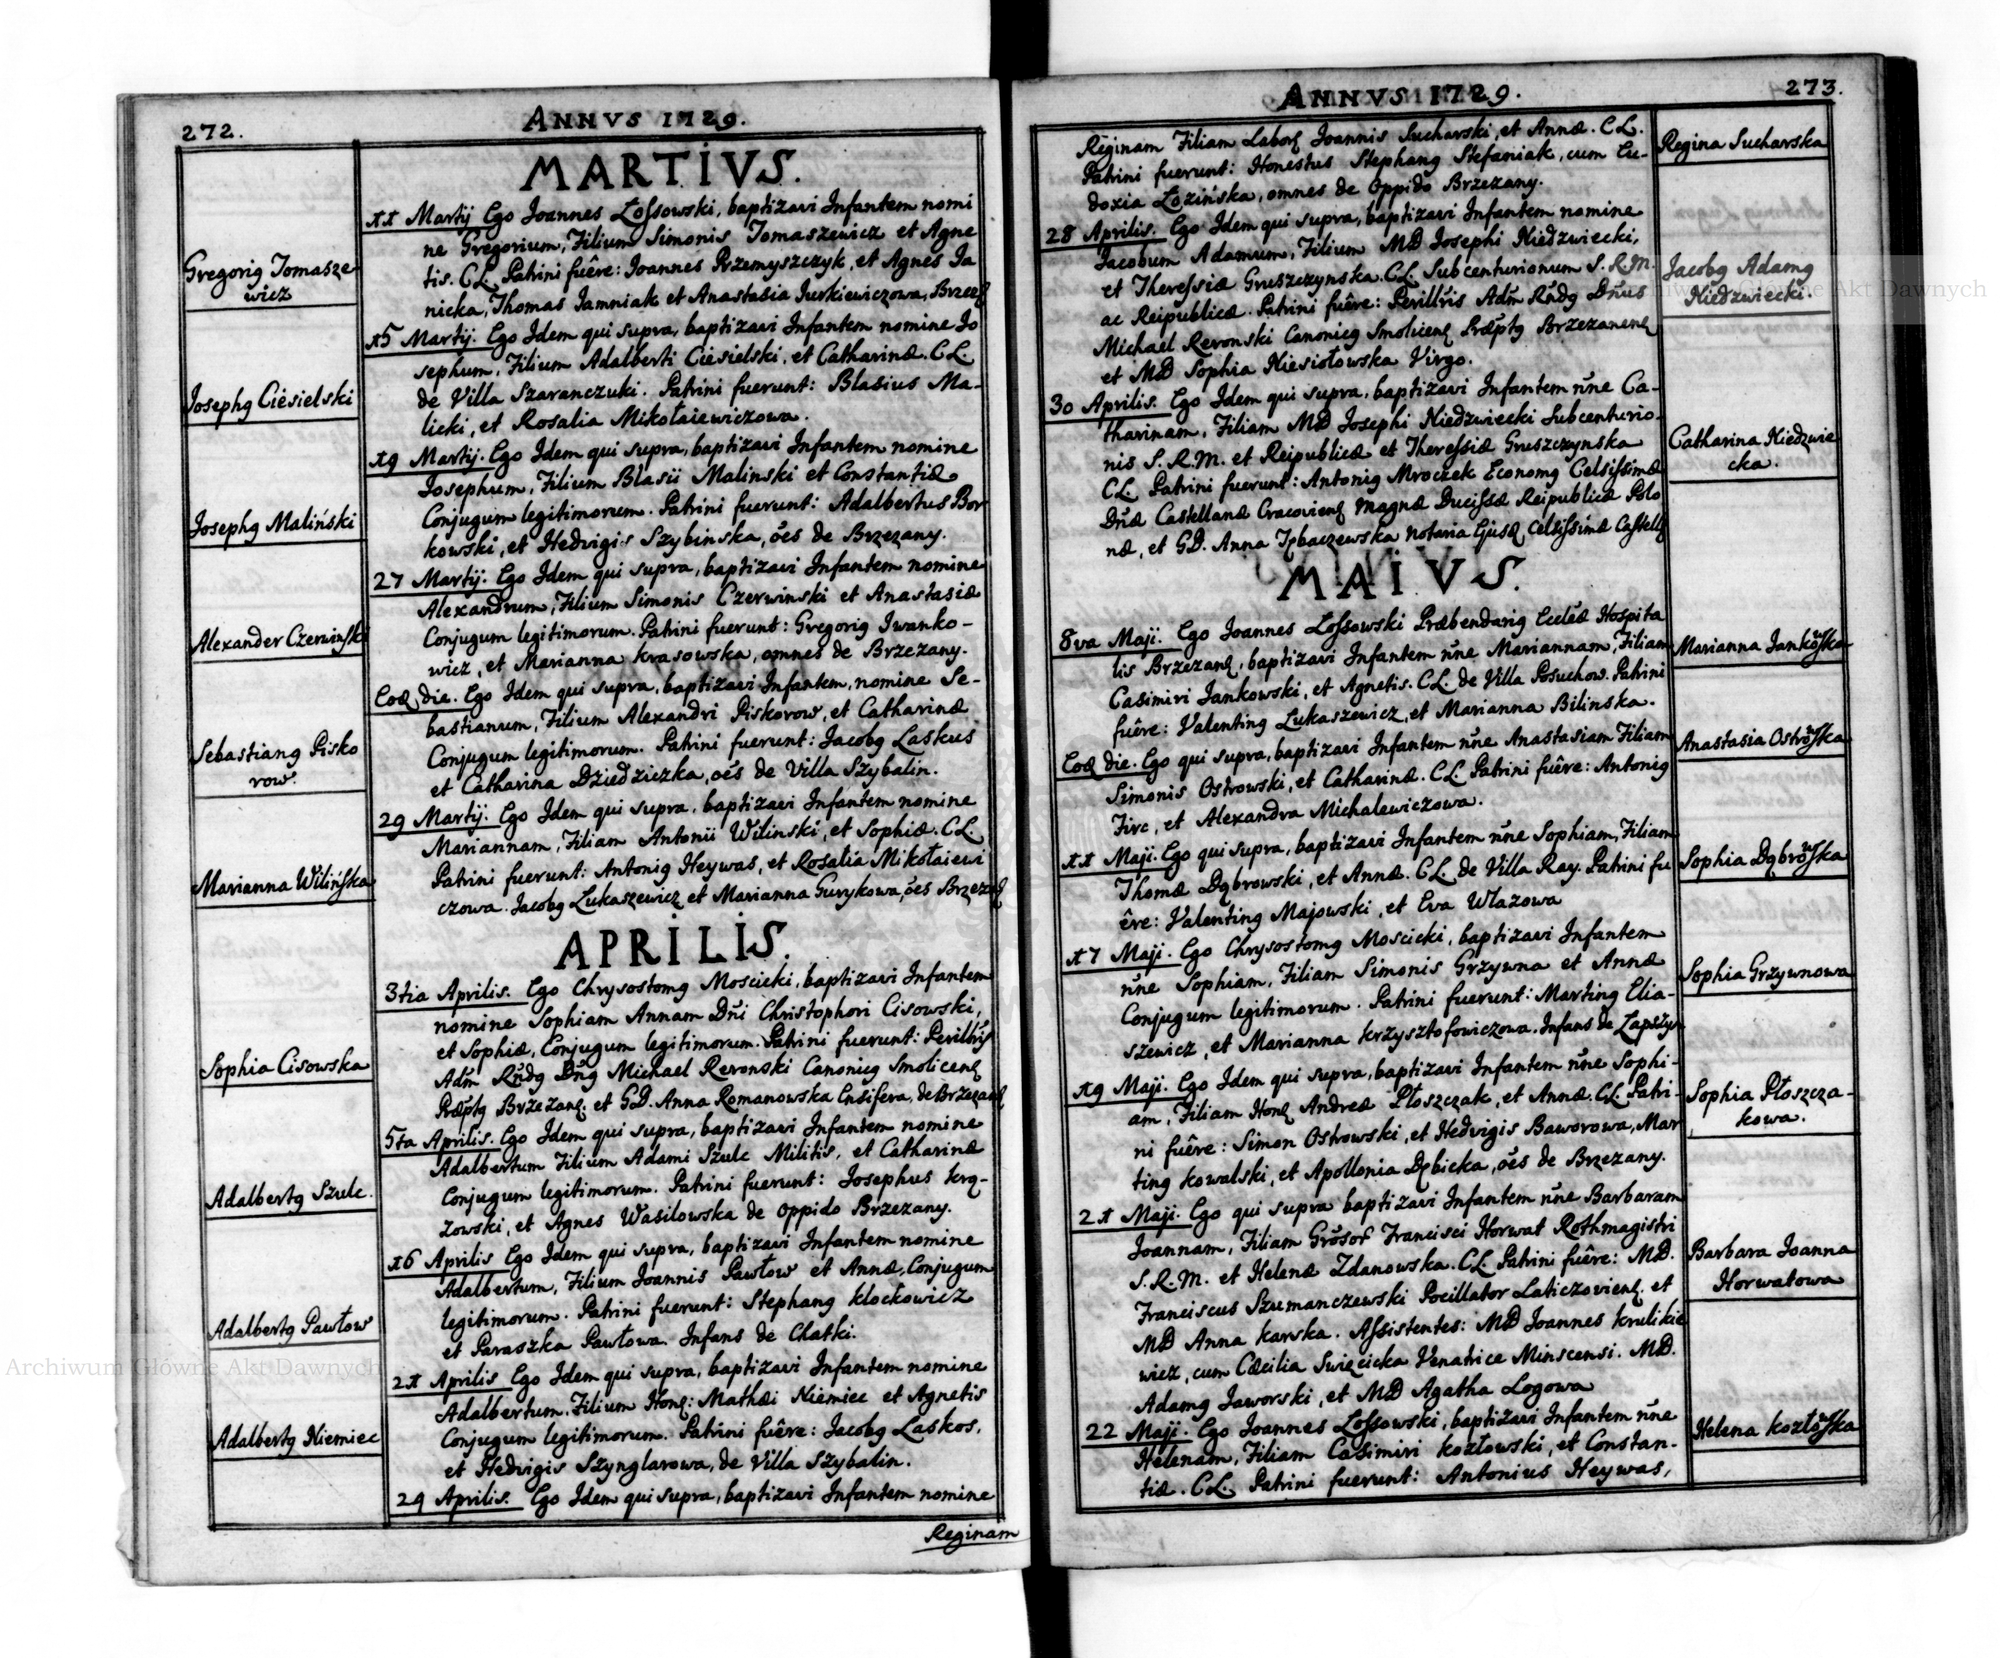 272.
ANNVS 1729.
MARTIVS.
11 Martij Ego Joannes Lossowski, baptizavi Infantem nomi
ne Gregorium, Filium Simonis Tomaszewicz et Agne
tis. CL. Patrini fuêre: Joannes Przemyszczyk, et Agnes Ja
nicka, Thomas Jamniak et Anastasia Jurkiewiczowa, Brzez
Gregorig Tomasze
wicz
15 Martij. Ego Idem qui supra, baptizavi Infantem nomine Jo
sephum, Filium Adalberti Ciesielski, et Catharinæ. CL.
de Villa Szaranczuki. Patrini fuerunt: Blasius Ma-
licki, et Rosalia Mikołaiewiczowa.
Josephg Ciesielski
19 Martij. Ego Idem qui supra, baptizavi Infantem nomine
Josephum, Filium Blasii Malinski et Constantiæ
Conjugum legitimorum. Patrini fuerunt: Adalbertus Bor
kowski, et Hedvigis Szybinska, oês de Brzezany.
Josephg Maliński
27 Martij. Ego Idem qui supra, baptizavi Infantem nomine
Alexandrum, Filium Simonis Czerwinski et Anastasiæ
Conjugum legitimorum. Patrini fuerunt: Gregorig Iwanko-
wicz, et Marianna Krasowska, omnes de Brzezany.
Alexander Czerwinski
Eoã die. Ego Idem qui supra, baptizavi Infantem, nomine Se-
bastianum, Filium Alexandri Piskorow, et Catharinæ
Conjugum legitimorum. Patrini fuerunt: Jacobg Laskus
et Catharina Dziedziczka, oês de Villa Szybalin.
Sebastiang Pisko
row.
29 Martij. Ego Idem qui supra, baptizavi Infantem nomine
Mariannam, Filiam Antonii Wilinski, et Sophiæ. CL.
Patrini fuerunt: Antonig Heywas, et Rosalia Mikołaiewi
czowa. Jacobg Lukaszewicz et Marianna Gurykowa, oês Brzezan
Marianna Wilińska
APRILIS.
3tia Aprilis. Ego Chrysostomg Moscicki, baptizavi Infantem
nomine Sophiam Annam Dñi Christophori Cisowski,
et Sophiæ, Conjugum legitimorum. Patrini fuerunt: Perillris
Adm Rñdg Dñg Michael Revonski Canonicg Smolicen
Præptg Brzezan. et GD. Anna Romanowska Ensifera, de Brzezan
Sophia Cisowska
5ta Aprilis. Ego Idem qui supra, baptizavi Infantem nomine
Adalbertum Filium Adami Szulc Militis, et Catharinæ
Conjugum legitimorum. Patrini fuerunt: Josephus Krą-
zowski, et Agnes Wasilowska de Oppido Brzezany.
Adalbertg Szulc.
16 Aprilis Ego Idem qui supra, baptizavi Infantem nomine
Adalbertum, Filium Joannis Pawłow et Annæ, Conjugum
legitimorum. Patrini fuerunt: Stephang Klockowicz
et Paraszka Pawłowa. Infans de Chatki.
Adalbertg Pawłow
21 Aprilis Ego Idem qui supra, baptizavi Infantem nomine
Adalbertum. Filium Hon: Mathæi Niemiec et Agnetis
Conjugum legitimorum. Patrini fuêre: Jacobg Laskos,
et Hedvigis Szynglarowa, de Villa Szybalin.
Adalbertg Niemiec
29 Aprilis. Ego Idem qui supra, baptizavi Infantem nomine
Reginam
273.
ANNVS 1729.
Reginam Filiam Labor Joannis Sucharski, et Annæ. CL.
Patrini fuerunt: Honestus Stephang Stefaniak, cum Eu-
doxia Łozińska, omnes de Oppido Brzezany.
Regina Sucharska
28 Aprilis. Ego Idem qui supra, baptizavi Infantem nomine
Jacobum Adamum, Filium MD Josephi Niedzwiecki,
et Theressiæ Gruszczynska. CL. Subcenturionum S.R.M.
ac Reipublicæ. Patrini fuêre: Perillris Adm Rñdg Dñus
Michael Revonski Canonicg Smolicen Præptg Brzezanen
et MD Sophia Niesiołowska Virgo.
Jacobg Adamg
Niedzwiecki.
30 Aprilis. Ego Idem qui supra, baptizavi Infantem nñe Ca-
tharinam, Filiam MD Josephi Niedzwiecki Subcenturio-
nis S.R.M. et Reipublicæ et Theressiæ Gruszczynska
CL. Patrini fuerunt: Antonig Mroczek Economg Celsissimæ
Dñæ Castellanæ Cracovien Magnæ Ducissæ Reipublicæ Polo
næ, et GD. Anna Trbaczewska Notaria Ejusd Celsissimæ Castell
Catharina Niedzwie
cka.
MAIVS.
8va Maji. Ego Joannes Lossowski Præbendarig Eccles Hospita
lis Brzezan, baptizavi Infantem nñe Mariannam, Filiam
Casimiri Jankowski, et Agnetis. CL. de Villa Posuchow. Patrini
fuêre: Valenting Lukaszewicz, et Marianna Bilinska.
Marianna Jankowska
Eoã die. Ego qui supra, baptizavi Infantem nñe Anastasiam Filiam
Simonis Ostrowski, et Catharinæ. CL. Patrini fuêre: Antonig
Firc, et Alexandra Michalewiczowa.
Anastasia Ostrowska
11 Maji. Ego qui supra, baptizavi Infantem nñe Sophiam, Filiam
Thomæ Dąbrowski, et Annæ. CL. de Villa Ray. Patrini fu
êre: Valenting Majowski, et Eva Wlazowa
Sophia Dąbrowska
17 Maji. Ego Chrysostomg Moscicki, baptizavi Infantem
nñe Sophiam, Filiam Simonis Grzywna et Annæ
Conjugum legitimorum. Patrini fuerunt: Marting Elia-
szewicz, et Marianna Krzysztofowiczowa. Infans de Łapszyn
Sophia Grzywnowa
19 Maji. Ego Idem qui supra, baptizavi Infantem nñe Sophi-
am, Filiam Hon Andreæ Płoszczak, et Annæ. CL. Patri-
ni fuêre: Simon Ostrowski, et Hedvigis Baworowa, Mar
ting Kowalski, et Apollonia Dębicka, oês de Brzezany.
Sophia Płoszcza-
kowa.
21 Maji. Ego qui supra baptizavi Infantem nñe Barbaram
Joannam, Filiam Grosor Francisci Horwat Rothmagistri
S.R.M. et Helenæ Zdanowska. CL. Patrini fuêre: MD.
Franciscus Szumanczewski Pocillator Laticzovien. et
MD Anna Karska. Assistentes: MD Joannes Krulikie
wicz, cum Cæcilia Swięcicka Venatrice Minscensi. MD.
Adamg Jaworski, et MD Agatha Logowa
Barbara Joanna
Horwatowa
22 Maji. Ego Joannes Lossowski, baptizavi Infantem nñe
Helenam, Filiam Casimiri Kozłowski, et Constan-
tiæ. CL. Patrini fuerunt: Antonius Heywas,
Helena Kozłowska
Archiwum Główne Akt Dawnych
Archiwum Główne Akt Dawnych